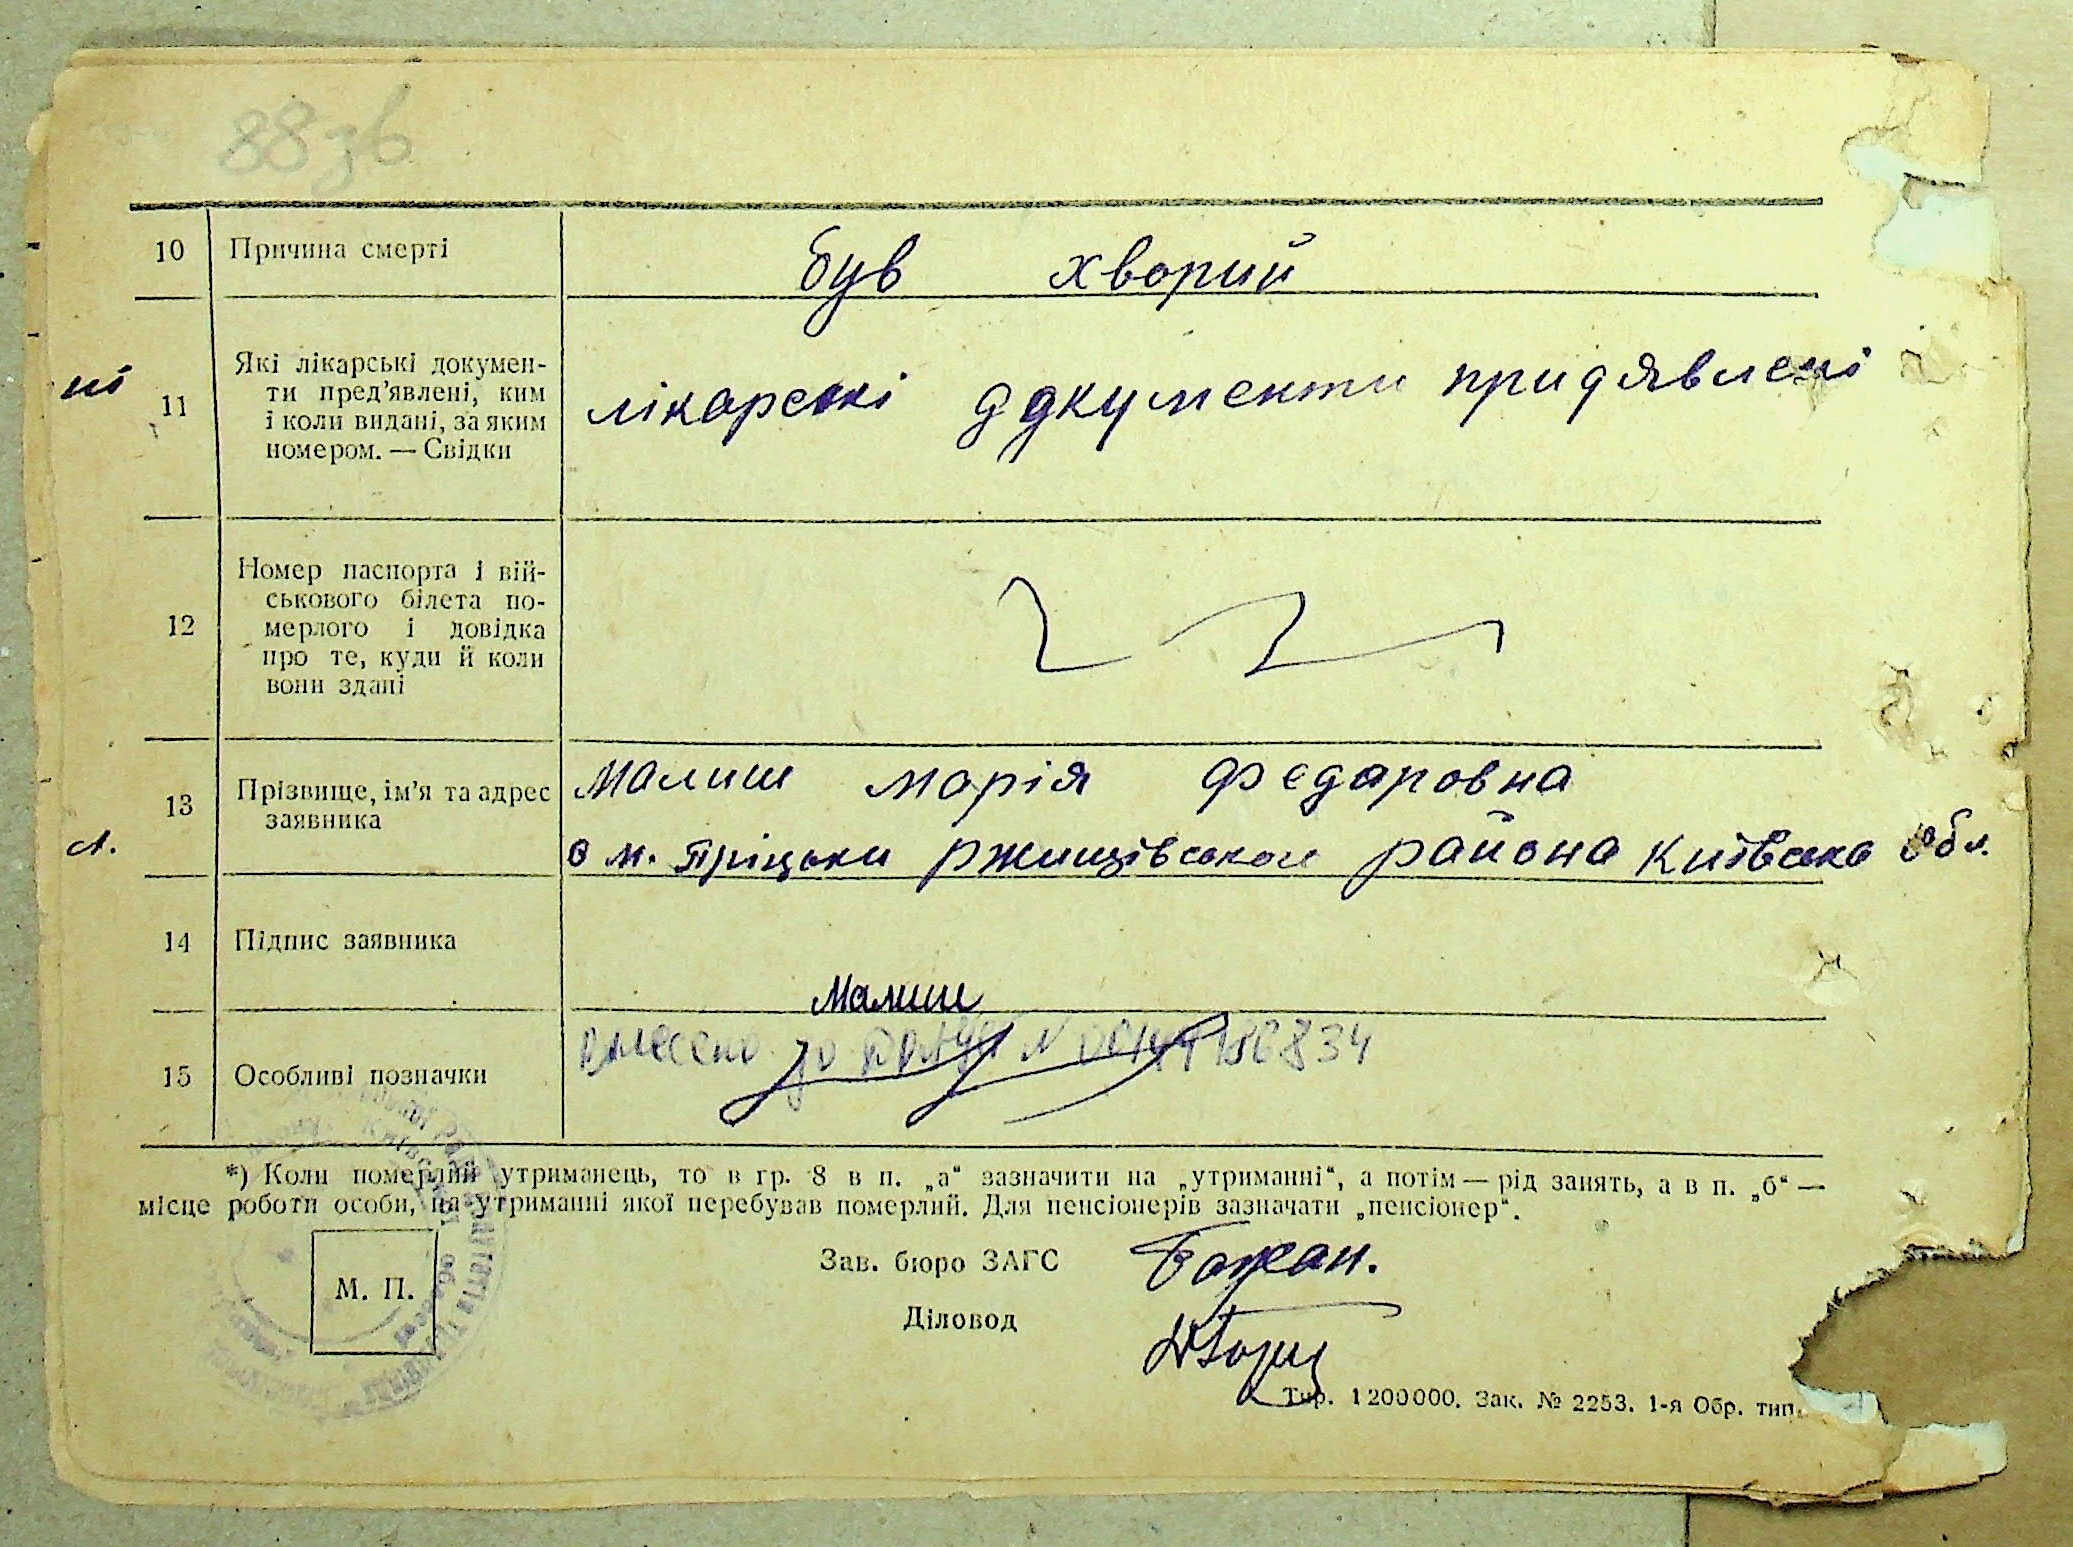 88зв
10 Причина смерті був хворий
11 Які лікарські докумен-
ти пред’явлені, ким
і коли видані, за яким
номером. — Свідки
лікарські документи придявлені
12 Номер паспорта і вій-
ськового білета по-
мерлого і довідка
про те, куди й коли
вони здані
13 Прізвище, ім’я та адрес
заявника
Малиш марія федаровна
в м. пріцьки ржищівськои района Київско обл.
14 Підпис заявника
Малиш
15 Особливі позначки
внесено до
*) Коли померлий утриманець, то в гр. 8 в п. „а“ зазначити на „утриманні“, а потім — рід занять, а в п. „б“ —
місце роботи особи, на утриманні якої перебував померлий. Для пенсіонерів зазначати „пенсіонер“.
М. П.
Зав. бюро ЗАГС Бажан.
Діловод
Тир. 1200000. Зак. № 2253. 1-я Обр. тип.